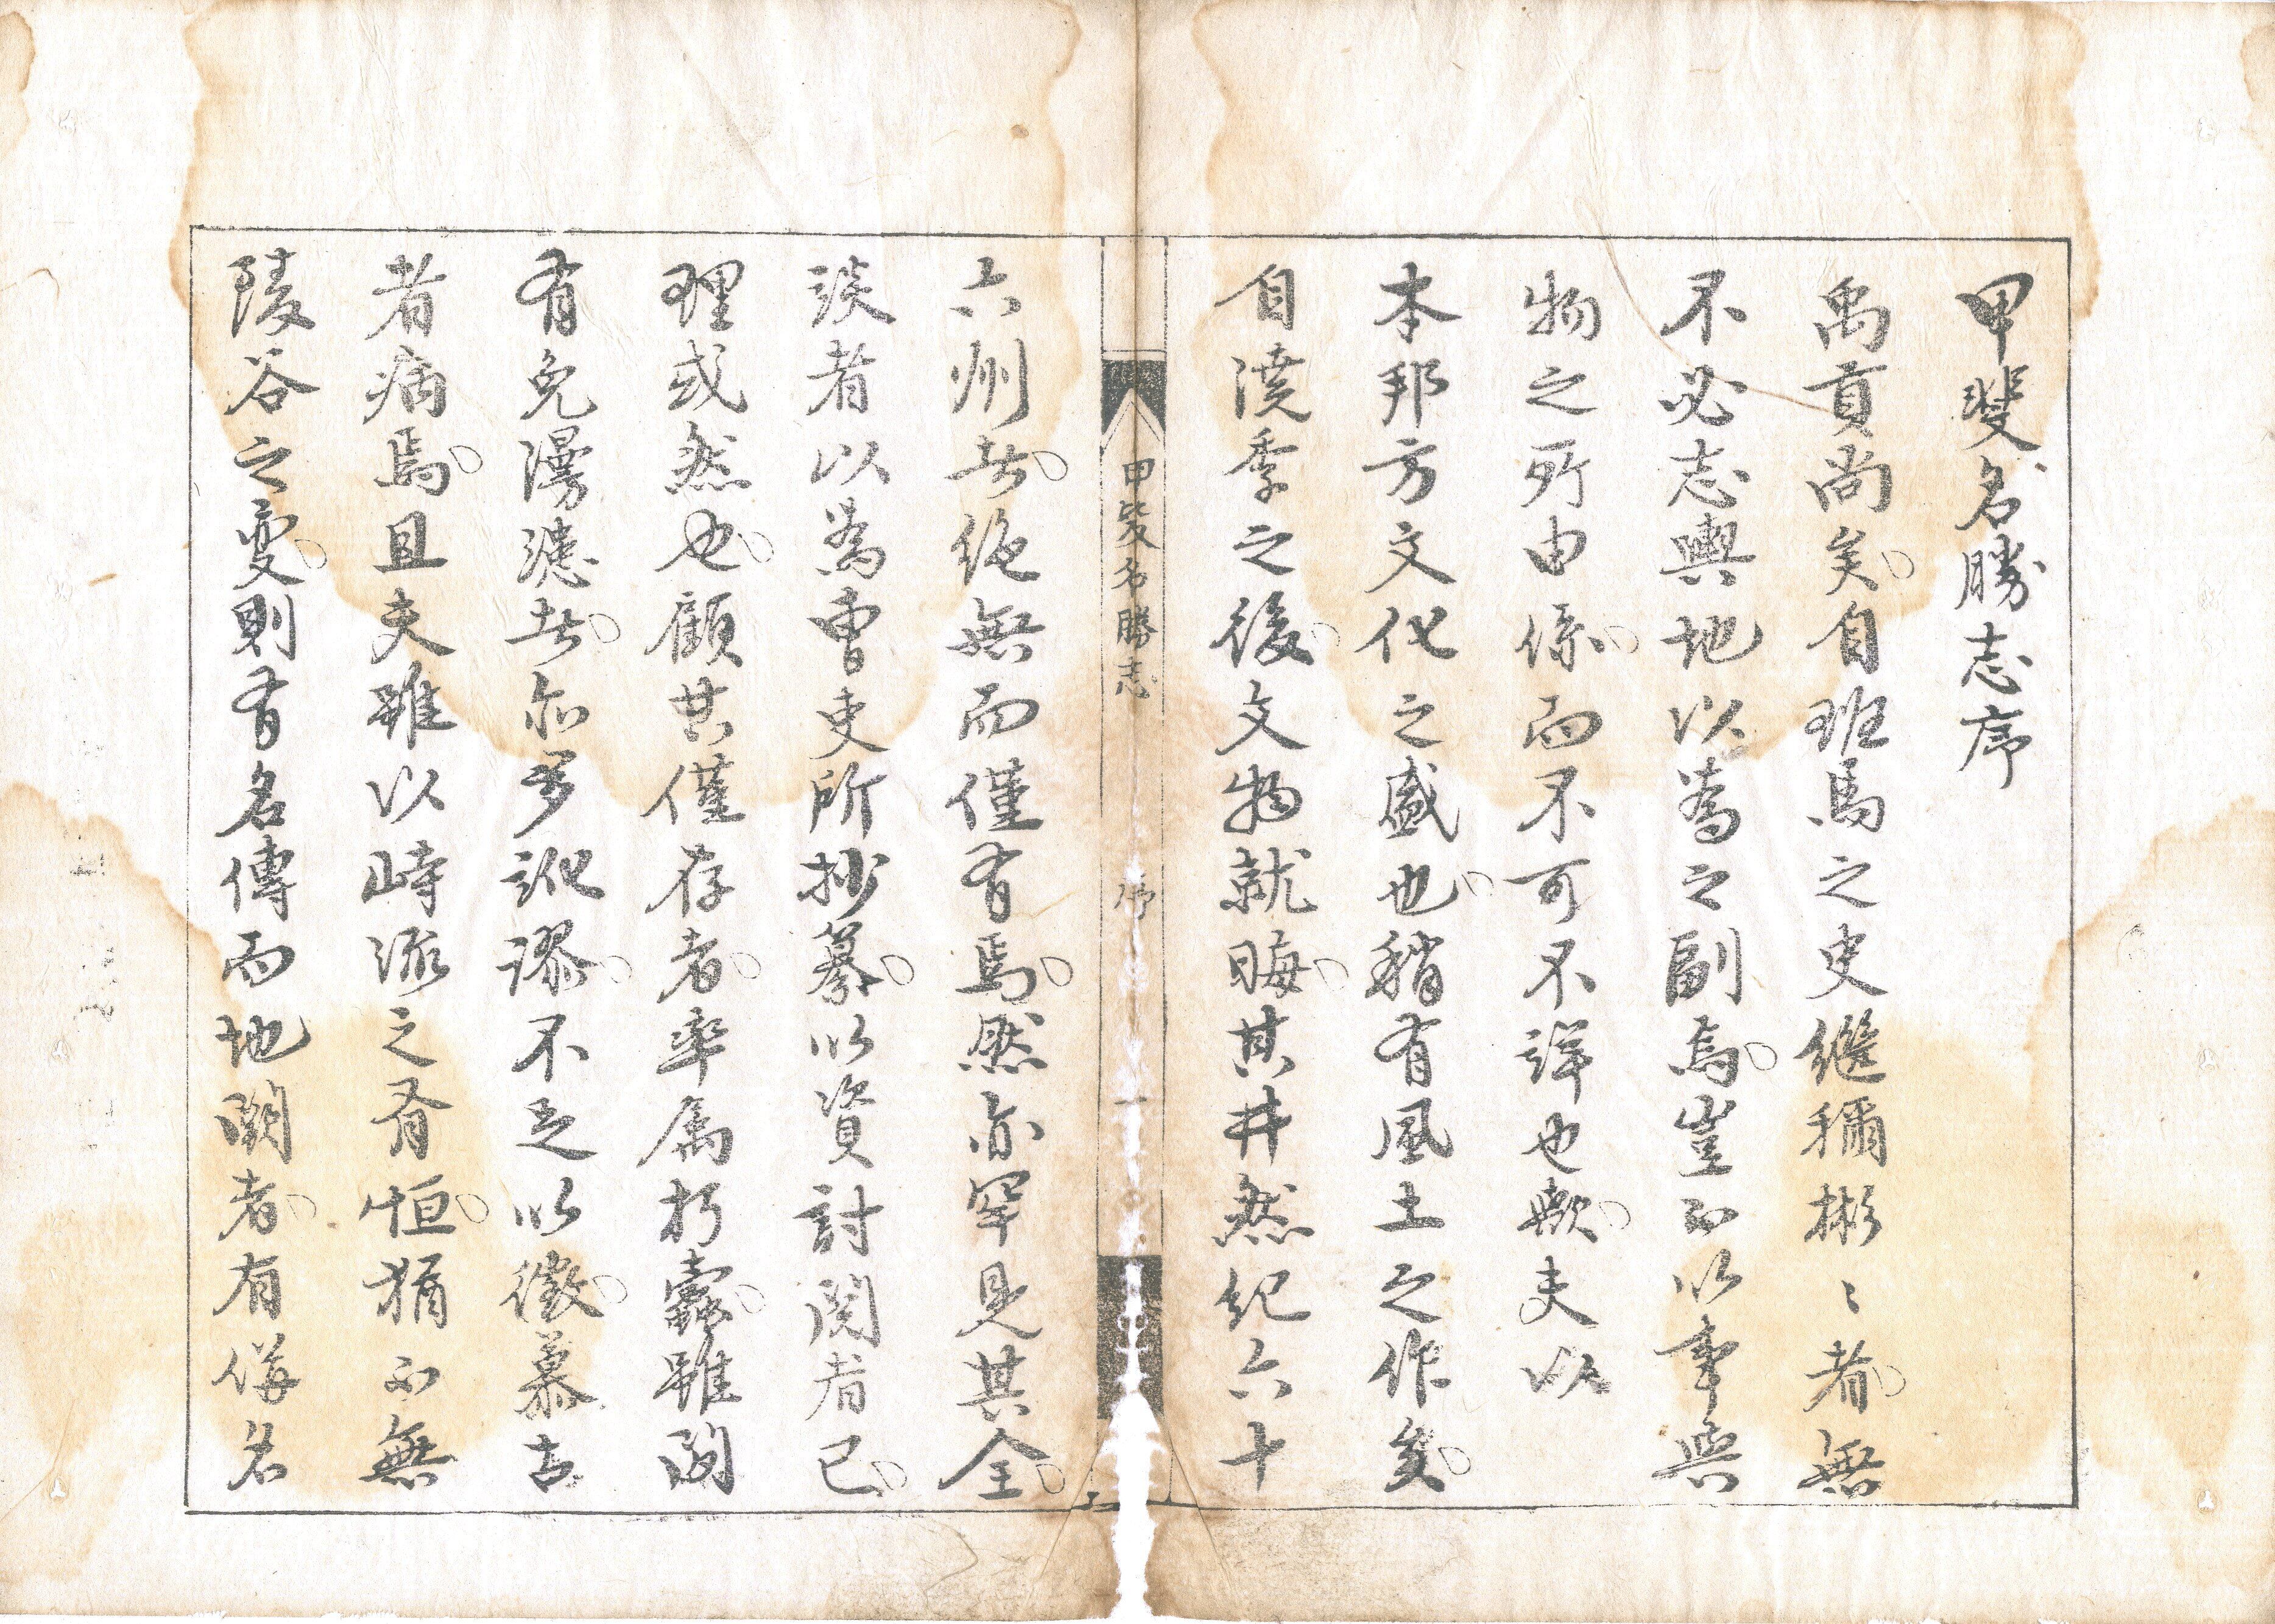 甲斐名勝志序
禹貢尚矣自班馬之史繼稱彬〻者無
不必志輿地以為之副焉豈不以事與
物之所由係而不可不詳也歟夫以
本邦方文化之盛也稍有風土之作矣
自澆季之後文物就晦其井然紀六十
甲斐名勝志
序
一
六州者絶無而僅有焉然亦罕見其全
談者以為曹吏所抄纂以資討閱者已
理或然也顧其僅存者率属朽蠧雖間
有免漫漶者亦多訛謬不足以徵慕古
者病焉且夫雖以峙流之有恒猶不無
陵谷之變則有名傳而地闕者有併名